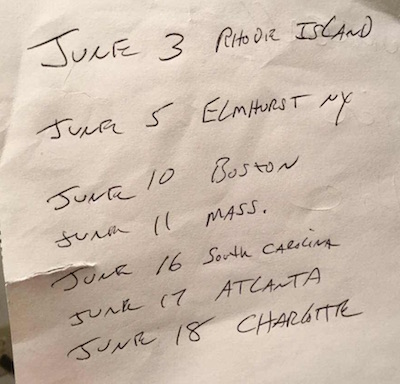 JUNE 3 RHODE ISLAND
JUNE 5 ELMHURST NY
JUNE 10 BOSTON
JUNE 11 MASS.
JUNE 16 South CAROLINA
JUNE 17 ATLANTA
JUNE 18 CHARLOTTE